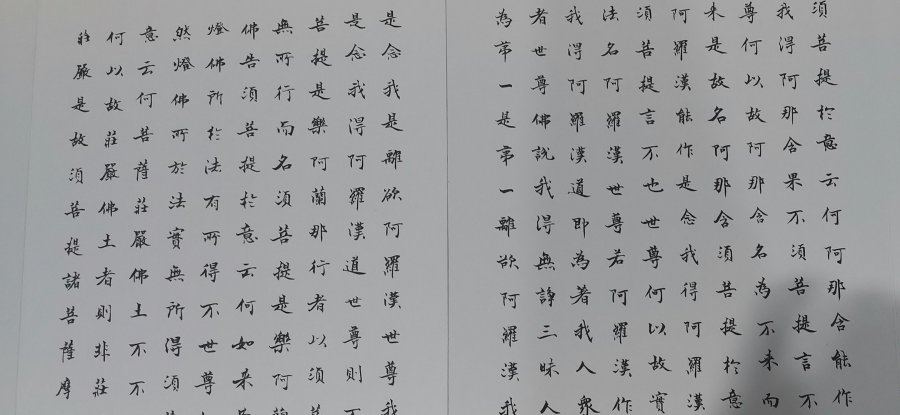 須菩提於意云何阿那含能作
我得阿那含果不須菩提言不
尊何以故阿那含名為不来而
来是故名阿那含須菩提於意
阿羅漢能作是念我得阿羅漢
須菩提言不也世尊何以故實
法名阿羅漢世尊若阿羅漢作
我得阿羅漢道即為著我人衆
者世尊佛說我得無諍三昧人
為苐一是苐一離欲阿羅漢我
是念我是離欲阿羅漢世尊我
是念我得阿羅漢道世尊則不
菩提是樂阿蘭那行者以須
無所行而名須菩提是樂阿
佛告須菩提於意云何如来
燈佛所於法有所得不世尊
然燈佛所於法實無所得須
意云何菩薩莊嚴佛土不不
何以故莊嚴佛土者則非莊
莊嚴是故須菩提諸菩薩摩